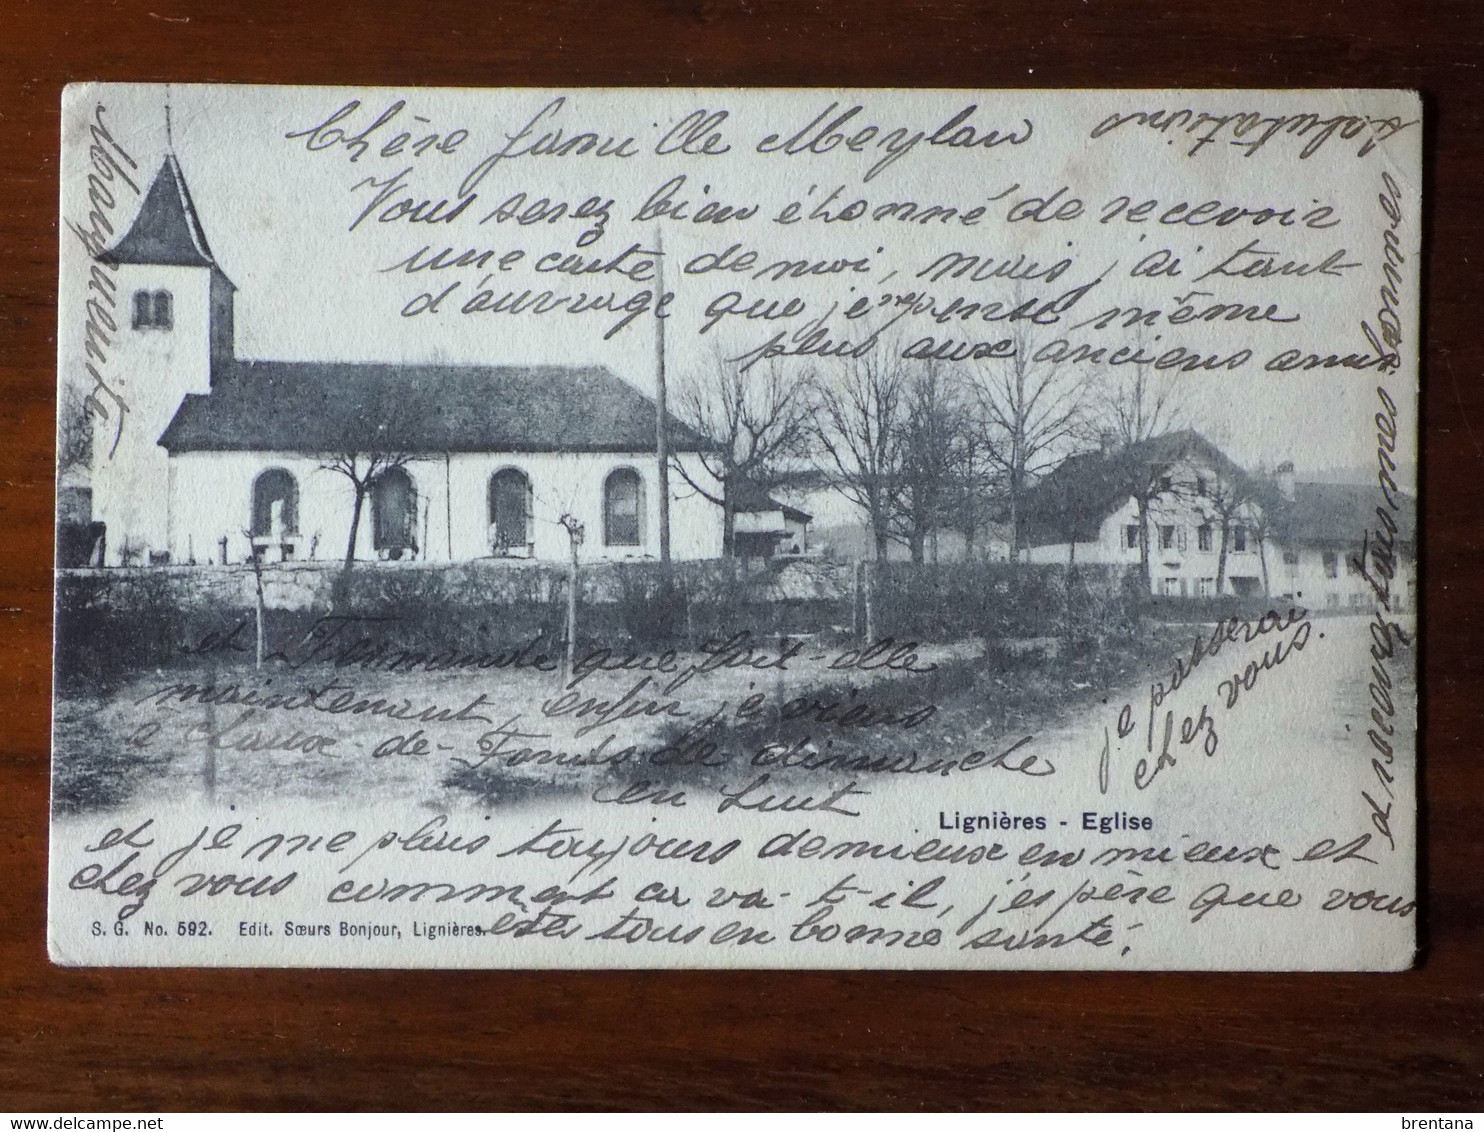 Chère famille Meylan
Vous serez bien étonné de recevoir
une carte de moi, mais j'ai tant
d'ouvrage que je ne pense même
plus aux anciens amis
et Fernande que fait-elle
maintenant, enfin je viens
a Chaux-de-Fonds de dimanche
en huit
je passerai
chez vous.
et je me plais toujours de mieux en mieux et
chez vous comment ca va-t-il, j'espère que vous
êtes tous en bonne santé.
et recevez tous mes
salutations
Marguerite
Lignières - Eglise
S. G. No. 592. Edit. Sœurs Bonjour, Lignières.
brentana